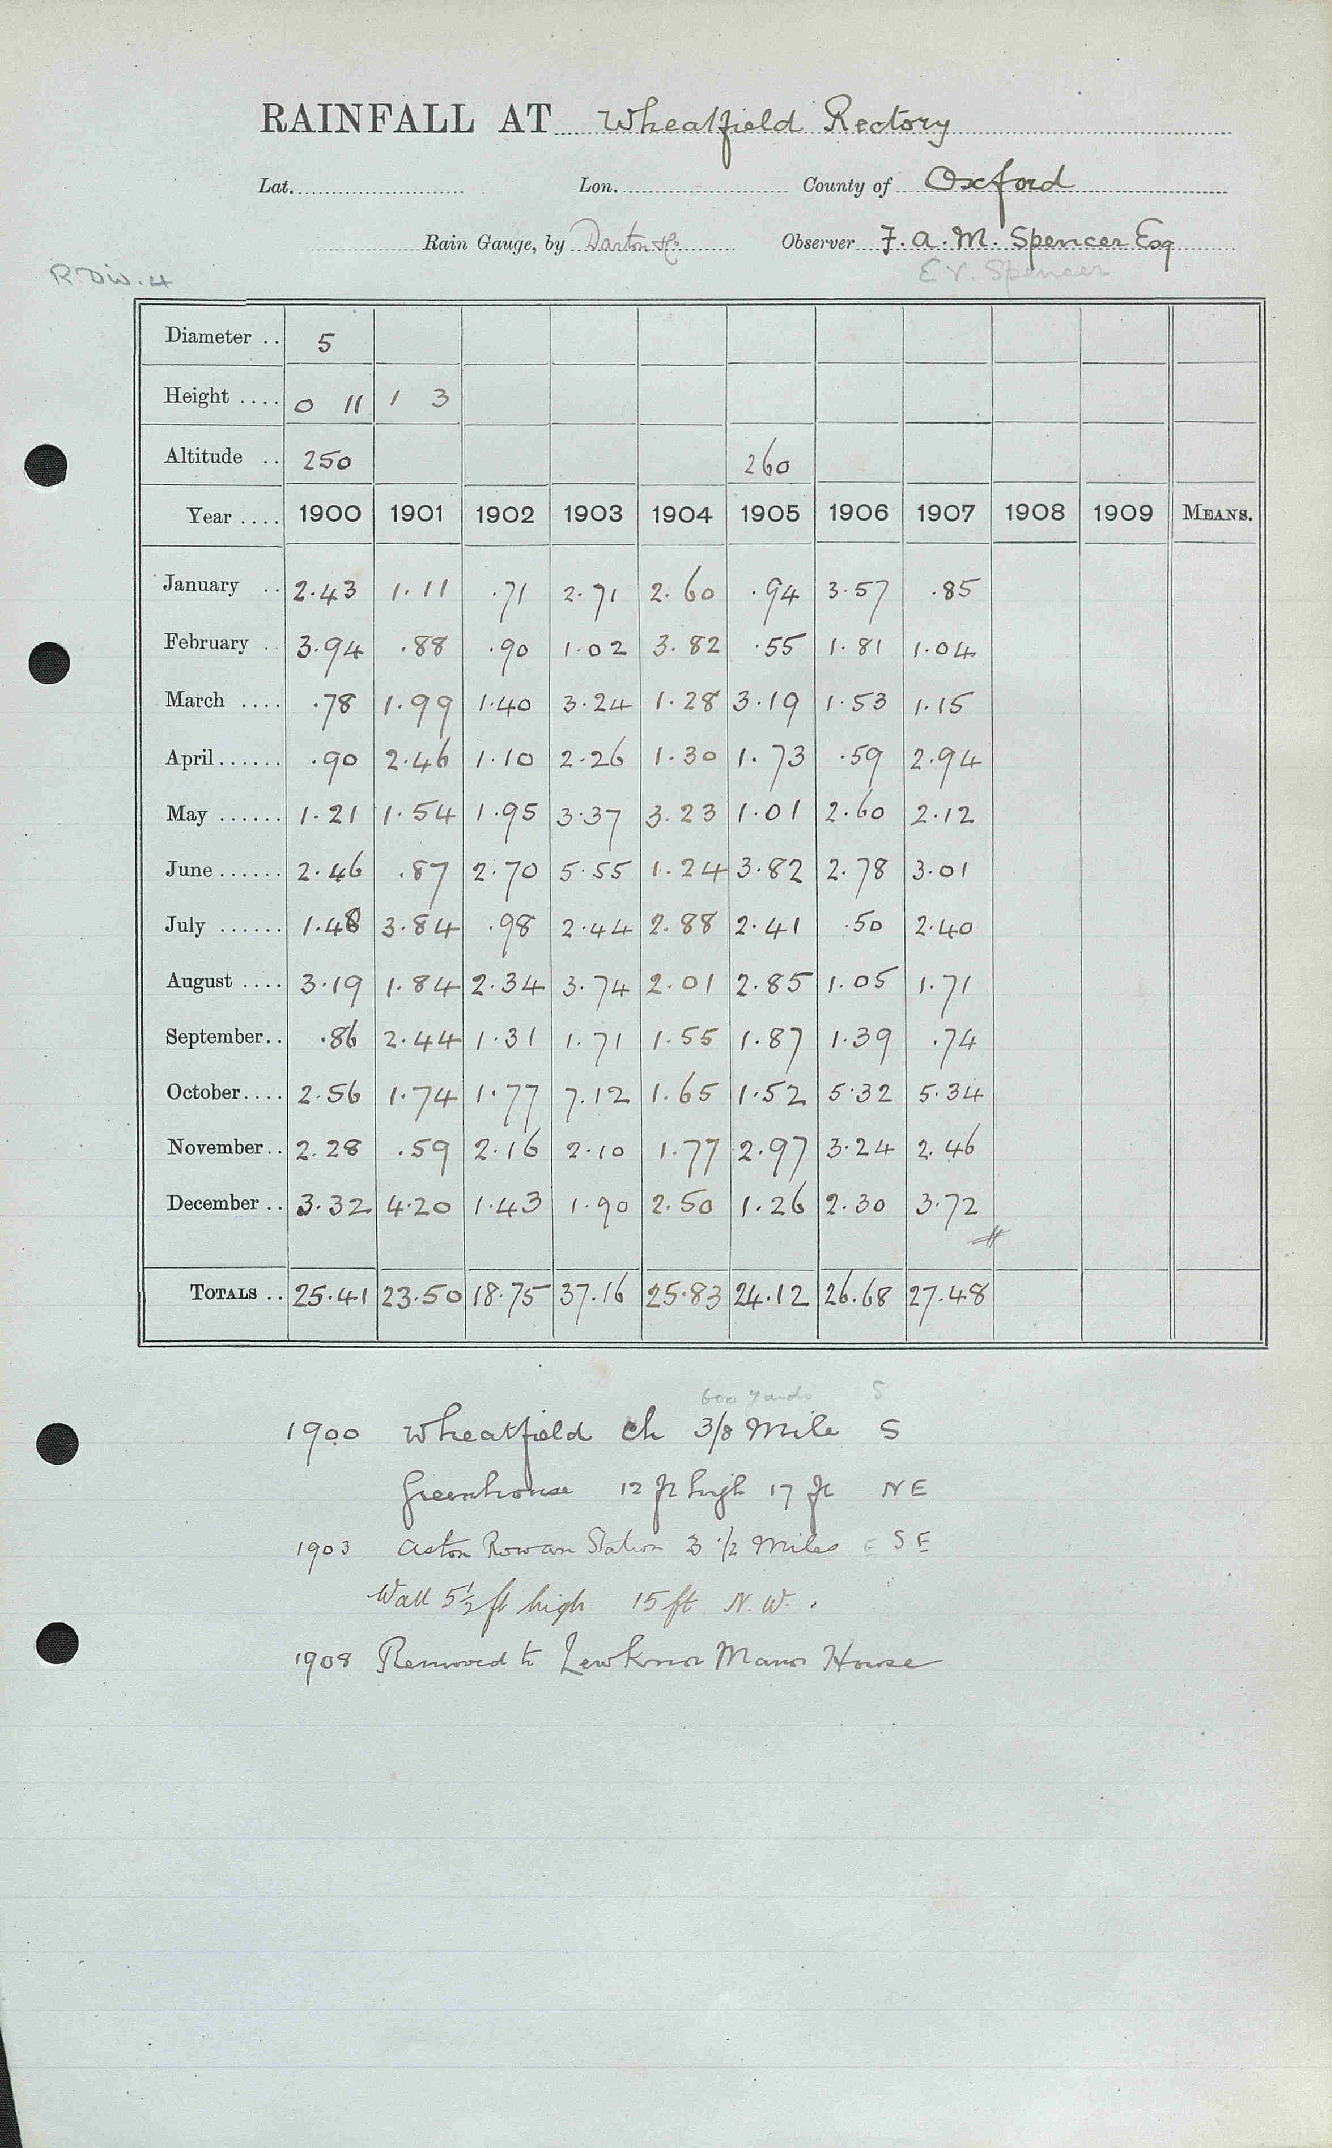 RAINFALL AT Wheatfield Rectory
Lat. Lon. County of Oxford
Rain Gauge, by Darton & Co. Observer F. A. M. Spencer Esq
R. Div. 4 E V. Spencer
Diameter .. 5
Height .... 0 11 1 3
Altitude .. 250 260
Year .... 1900 1901 1902 1903 1904 1905 1906 1907 1908 1909 MEANS.
January .. 2.43 1.11 .71 2.71 2.60 .94 3.57 .85
February .. 3.94 .88 .90 1.02 3.82 .55 1.81 1.04
March .... .78 1.99 1.40 3.24 1.28 3.19 1.53 1.15
April...... .90 2.46 1.10 2.26 1.30 1.73 .59 2.94
May ...... 1.21 1.54 1.95 3.37 3.23 1.01 2.60 2.12
June ...... 2.46 .87 2.70 5.55 1.24 3.82 2.78 3.01
July ...... 1.48 3.84 .98 2.44 2.88 2.41 .50 2.40
August .... 3.19 1.84 2.34 3.74 2.01 2.85 1.05 1.71
September.. .86 2.44 1.31 1.71 1.55 1.87 1.39 .74
October.... 2.56 1.74 1.77 7.12 1.65 1.52 5.32 5.34
November.. 2.28 .59 2.16 2.10 1.77 2.97 3.24 2.46
December .. 3.32 4.20 1.43 1.90 2.50 1.26 2.30 3.72
TOTALS .. 25.41 23.50 18.75 37.16 25.83 24.12 26.68 27.48
600 yards S
1900 Wheatfield Ch 3/8 Mile S
Greenhouse 12 ft high 17 ft NE
1903 Aston Rowan Station 3 1/2 Miles E S E
Wall 5½ ft high 15 ft N.W.
1908 Removed to Lewknor Manor House